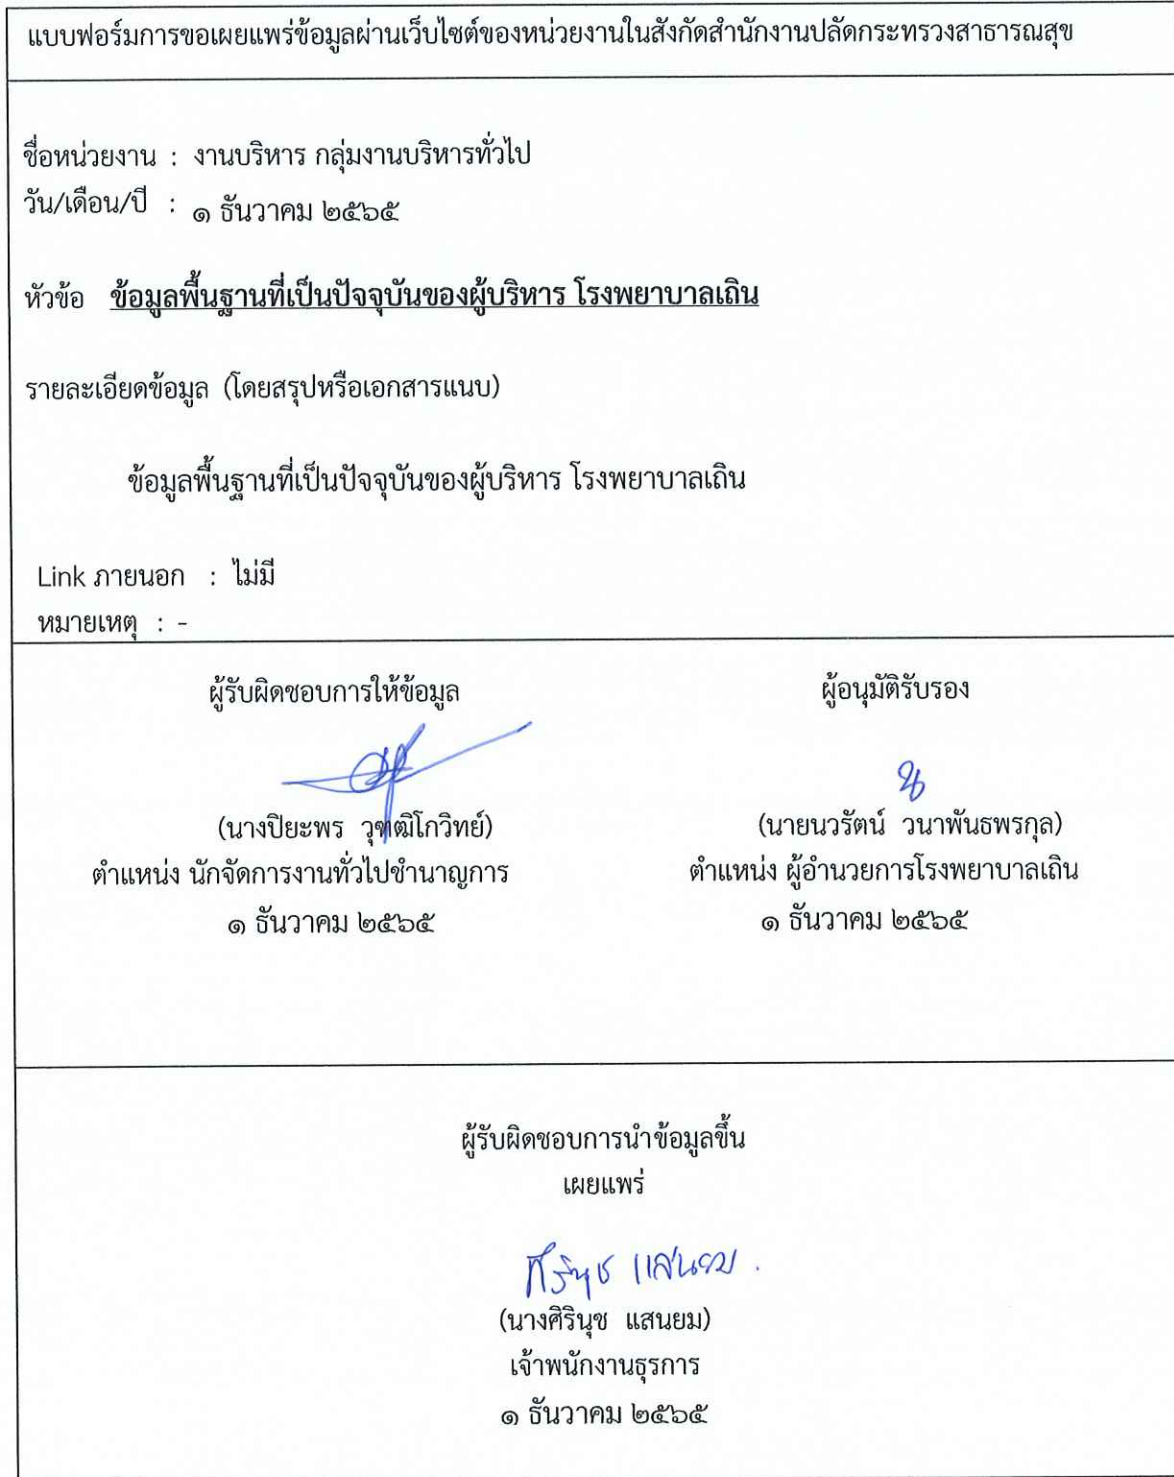 แบบฟอร์มการขอเผยแพร่ข้อมูลผ่านเว็บไซต์ของหน่วยงานในสังกัดสำนักงานปลัดกระทรวงสาธารณสุข
ชื่อหน่วยงาน : งานบริหาร กลุ่มงานบริหารทั่วไป
วัน/เดือน/ปี : ๑ ธันวาคม ๒๕๖๕
หัวข้อ ข้อมูลพื้นฐานที่เป็นปัจจุบันของผู้บริหาร โรงพยาบาลเถิน
รายละเอียดข้อมูล (โดยสรุปหรือเอกสารแนบ)
ข้อมูลพื้นฐานที่เป็นปัจจุบันของผู้บริหาร โรงพยาบาลเถิน
Link ภายนอก : ไม่มี
หมายเหตุ : -
ผู้รับผิดชอบการให้ข้อมูล ผู้อนุมัติรับรอง
(นางปิยะพร วุฑฒิโกวิทย์) (นายนวรัตน์ วนาพันธพรกุล)
ตำแหน่ง นักจัดการงานทั่วไปชำนาญการ ตำแหน่ง ผู้อำนวยการโรงพยาบาลเถิน
๑ ธันวาคม ๒๕๖๕ ๑ ธันวาคม ๒๕๖๕
ผู้รับผิดชอบการนำข้อมูลขึ้น
เผยแพร่
ศิรินุช แสนยม
(นางศิรินุช แสนยม)
เจ้าพนักงานธุรการ
๑ ธันวาคม ๒๕๖๕